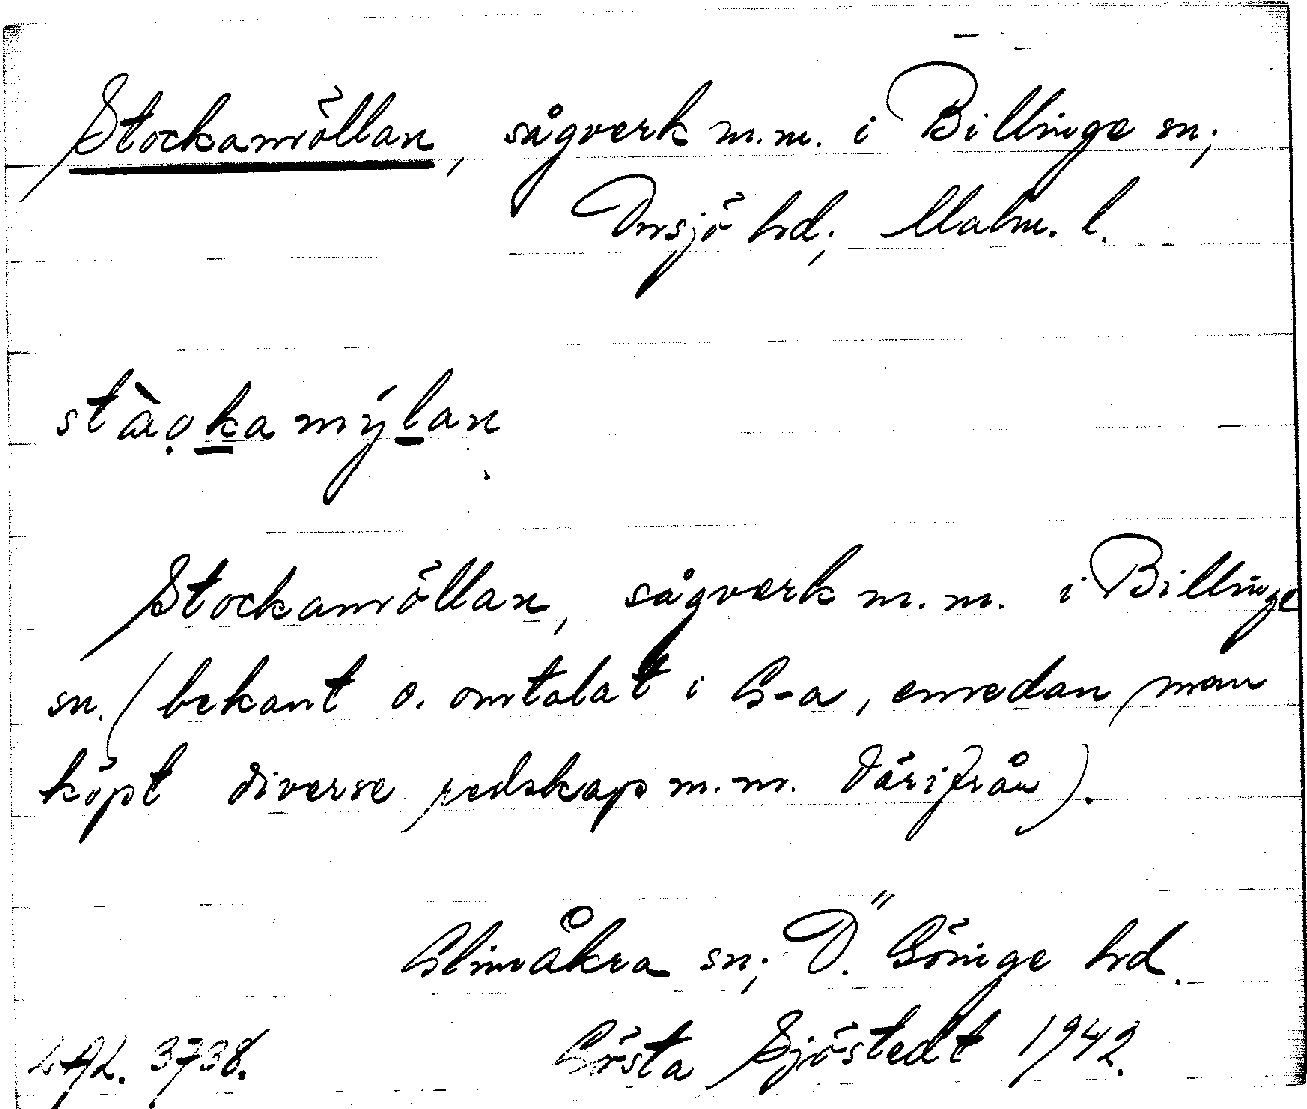 Stockamöllan, sågverk m.m. i Billinge sn;
Onsjö hd; Malm. l.
stàọka mýlan
Stockamöllan, sågverk m.m. i Billinge
sn. (bekant o. omtalat i G-a, emedan man
köpt diverse redskap m.m. därifrån).
Glimåkra sn; Ö. Göinge hd.
LAL. 3738. Gösta Sjöstedt 1942.